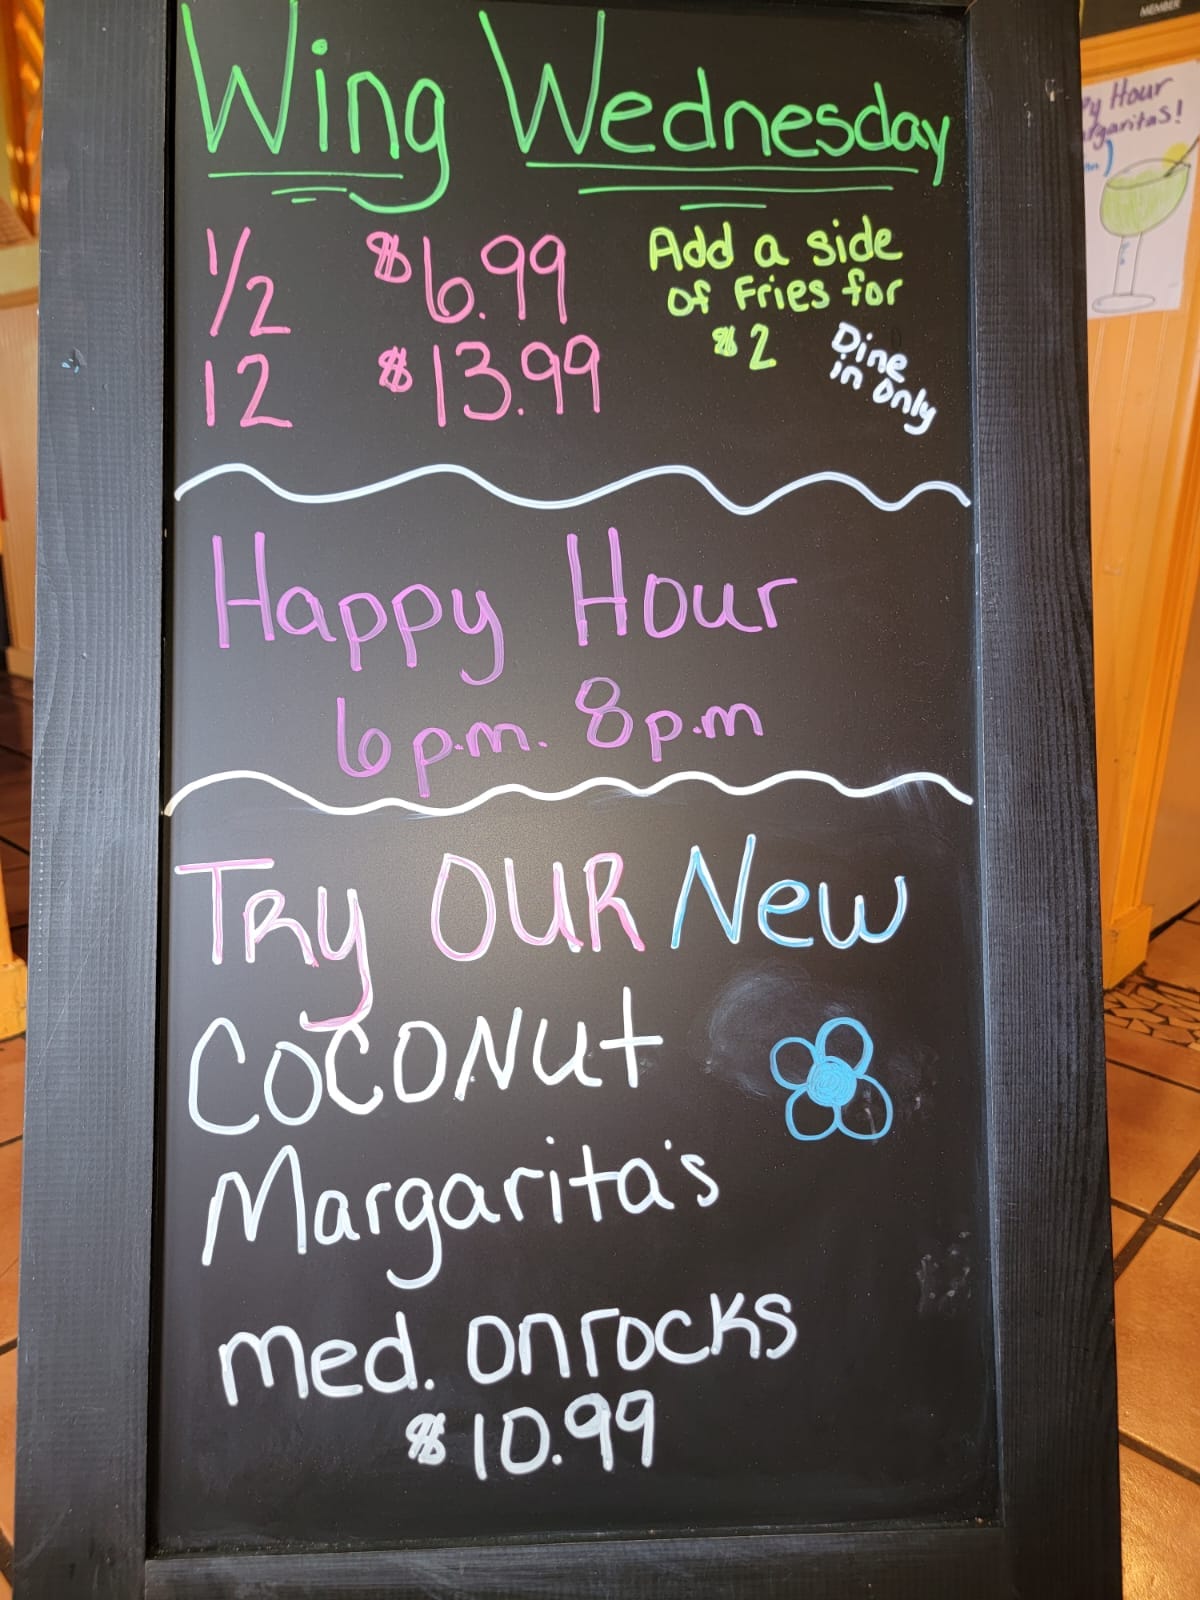 Wing Wednesday
1/2 $6.99
12 $13.99
Add a side
of Fries for
$2
Dine
in only
Happy Hour
6p.m. 8p.m
Try OUR New
Coconut
Margarita's
med. onrocks
$10.99
MEMBER
Hour